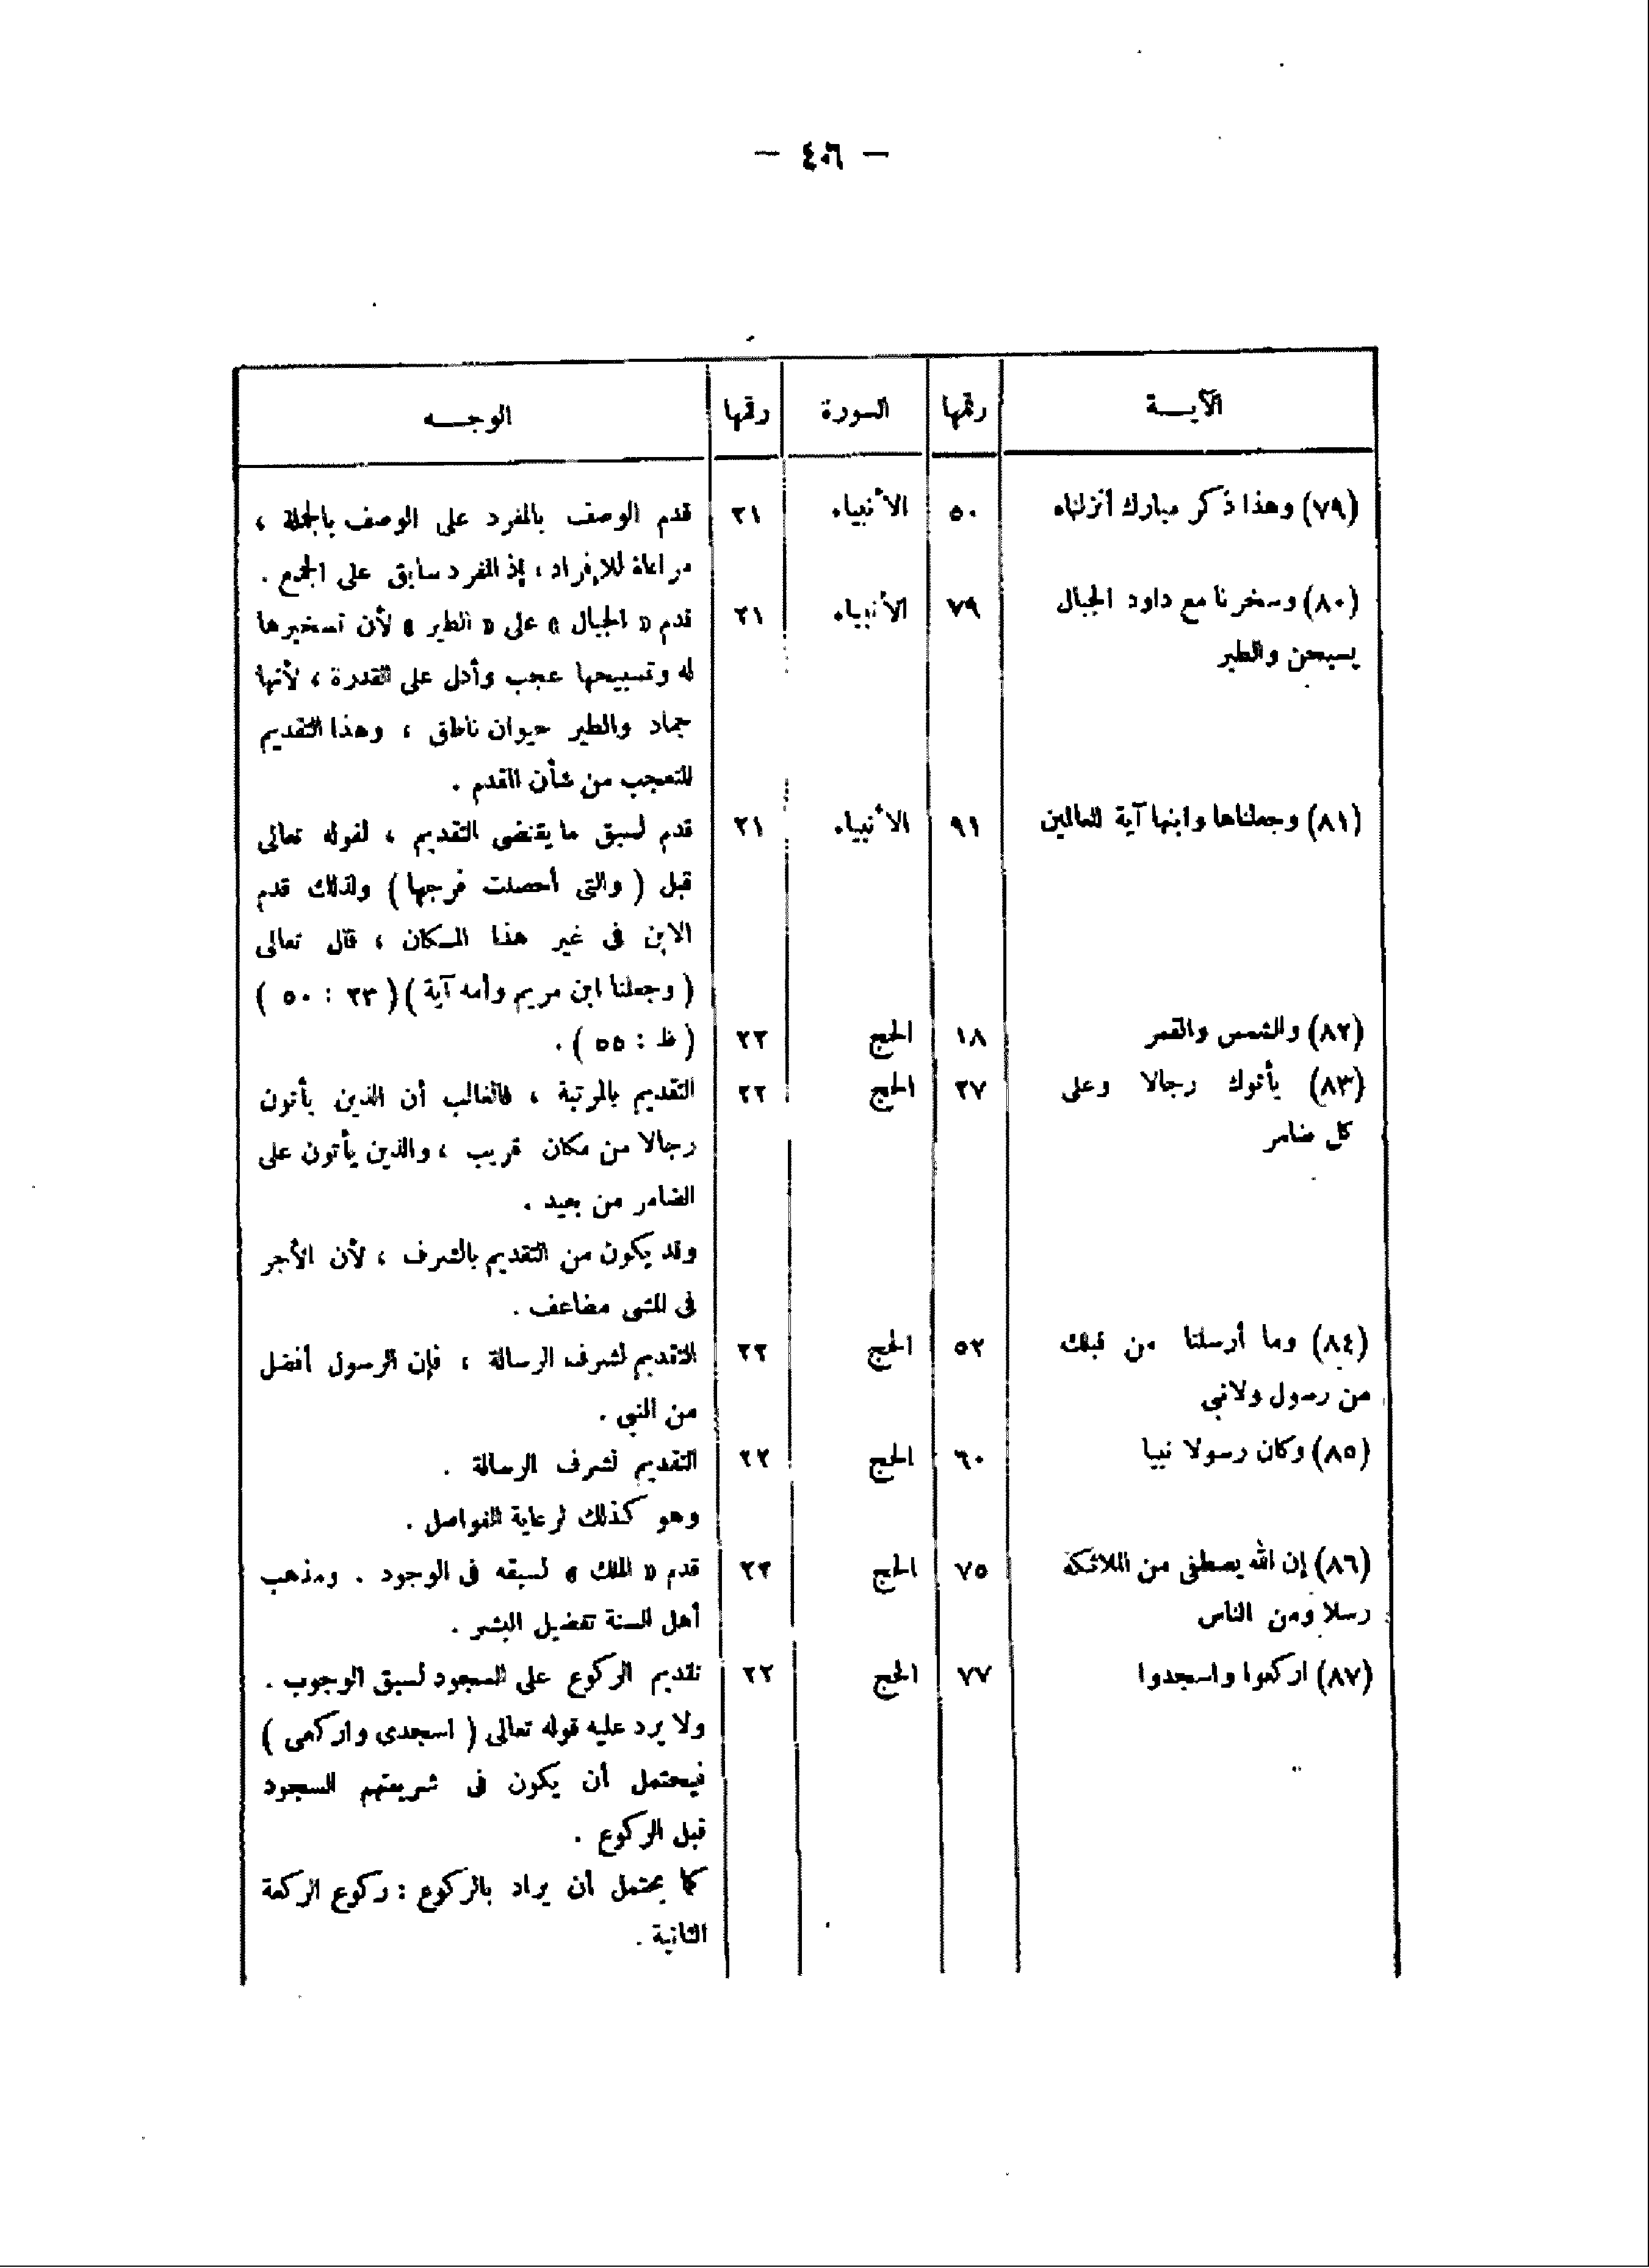 — ٤٠٦ —
الآيــة | رقمها | السورة | رقمها | الوجــه
(٧٩) وهذا ذكر مبارك أنزلناه | ٥٠ | الأنبياء | ٢١ | قدم الوصف بالمفرد على الوصف بالجملة ،
مراعاة للإفراد ، إذ المفرد سابق على الجمع .
(٨٠) وسخرنا مع داود الجبال | ٧٩ | الأنبياء | ٢١ | قدم « الجبال » على « الطير » لأن تسخيرها
يسبحن والطير | له وتسبيحها عجب وأدل على القدرة ، لأنها
جماد والطير حيوان ناطق ، وهذا التقديم
للتعجب من شأن المقدم .
(٨١) وجعلناها وابنها آية للعالمين | ٩١ | الأنبياء | ٢١ | قدم لسبق ما يقتضى التقديم ، لقوله تعالى
قبل ( والتى أحصنت فرجها ) ولذلك قدم
الابن فى غير هذا المكان ، قال تعالى
( وجعلنا ابن مريم وأمه آية ) ( ٢٣ : ٥٠ )
(٨٢) والشمس والقمر | ١٨ | الحج | ٢٢ | ( ظ : ٥٥ ) .
(٨٣) يأتوك رجالا وعلى | ٢٧ | الحج | ٢٢ | التقديم بالمرتبة ، فالغالب أن الذين يأتون
كل ضامر | رجالا من مكان قريب ، والذين يأتون على
الضامر من بعيد .
وقد يكون من التقديم بالشرف ، لأن الأجر
فى المشى مضاعف .
(٨٤) وما أرسلنا من قبلك | ٥٢ | الحج | ٢٢ | التقديم لشرف الرسالة ، فإن الرسول أفضل
من رسول ولا نبي | من النبي .
(٨٥) وكان رسولا نبيا | ٦٠ | الحج | ٢٢ | التقديم لشرف الرسالة .
وهو كذلك لرعاية الفواصل .
(٨٦) إن الله يصطفى من الملائكة | ٧٥ | الحج | ٢٢ | قدم « الملك » لسبقه فى الوجود . ومذهب
رسلا ومن الناس | أهل السنة تفضيل البشر .
(٨٧) اركعوا واسجدوا | ٧٧ | الحج | ٢٢ | تقديم الركوع على السجود لسبق الوجوب .
ولا يرد عليه قوله تعالى ( اسجدى واركعى )
فيحتمل أن يكون فى شريعتهم السجود
قبل الركوع .
كما يحتمل أن يراد بالركوع : ركوع الركعة
الثانية .